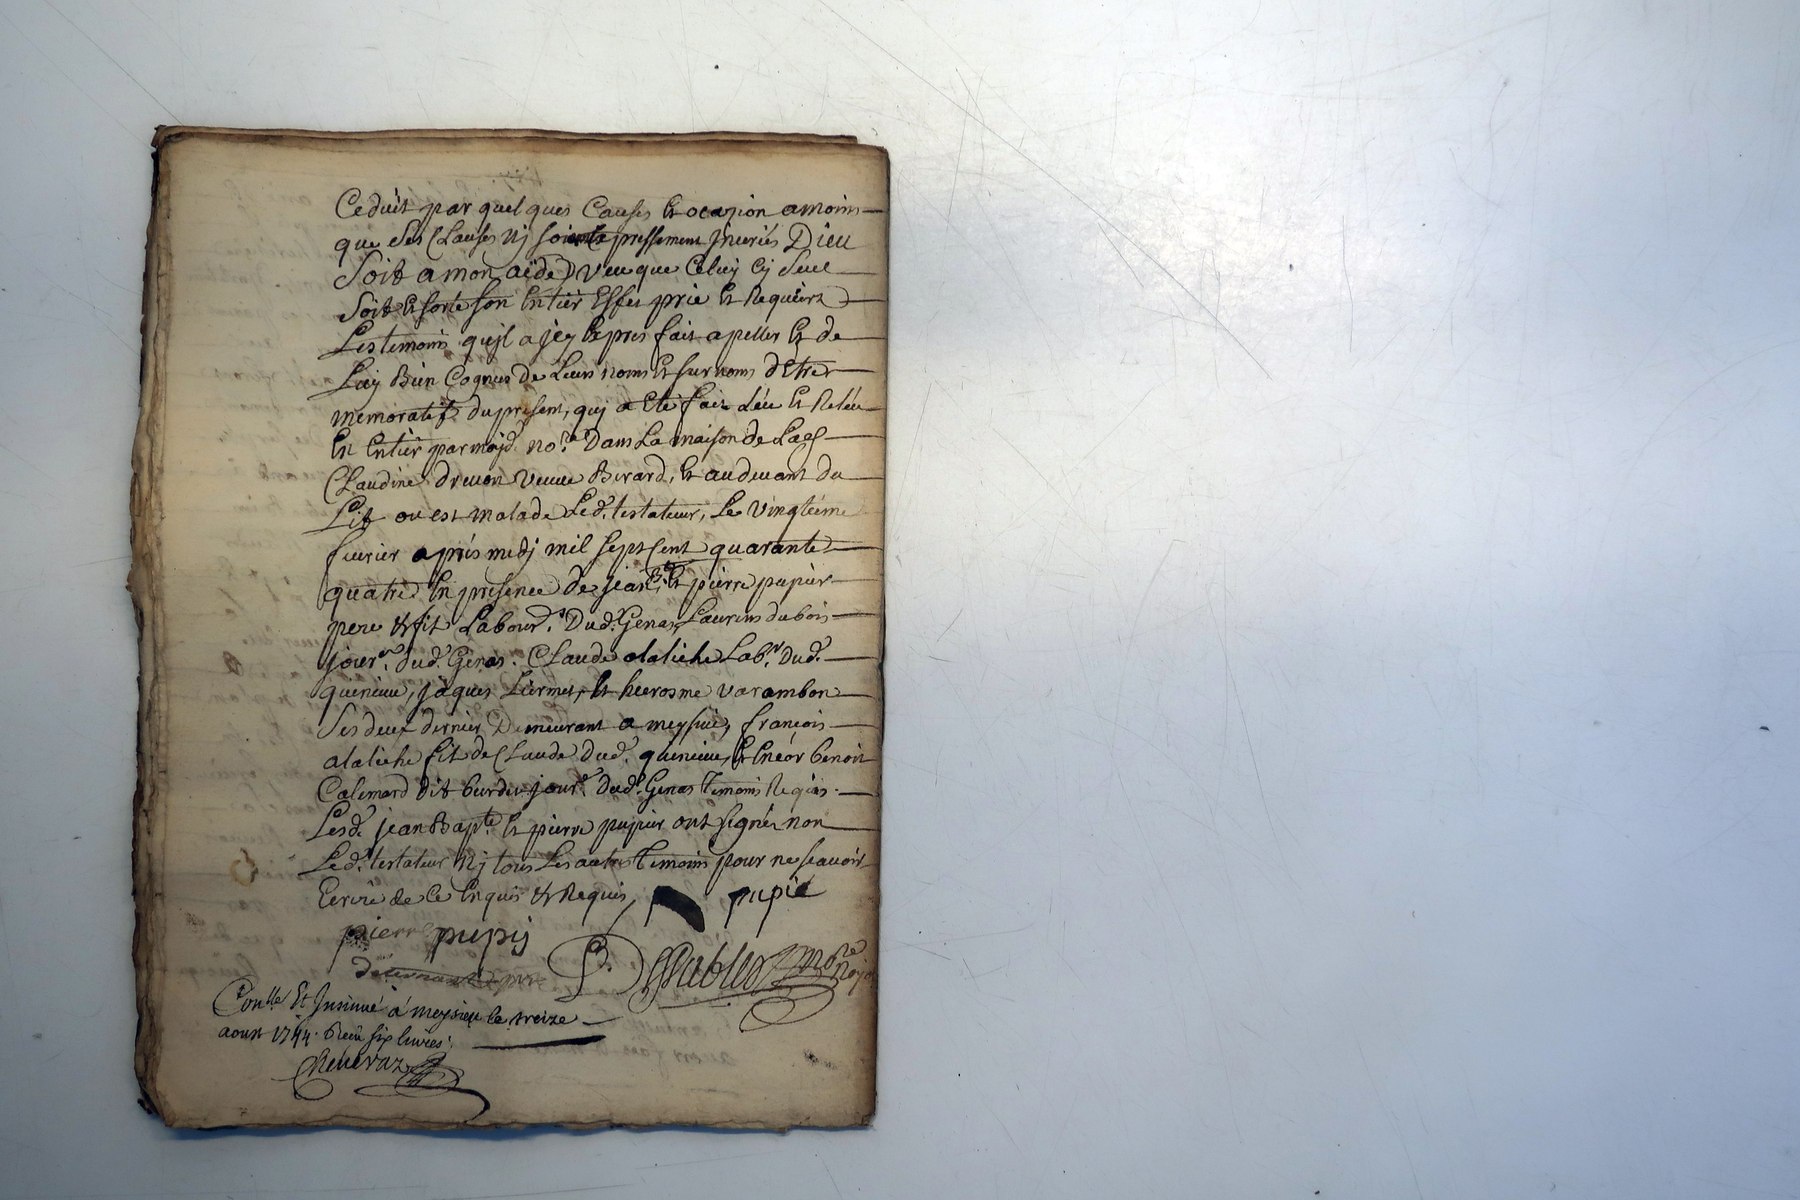 Ceduit par quel ques Causes et ocazion amoins
que Ses Clauses nj soient expressement Jnceriés Dieu
Soit a mon aïde) veu que Celuy Cy Seul
Soit et sorte son Entier Effet prie et Requiert
Les temoins qujl a jcy bepres fait apeller et de
Luy Bien Cognus de Leurs noms et surnoms dEtre
memoratif du present, quj a Eté fait Léu et Reléu
En Entier par mojd. no.re Dans La maison de
Claudine drevon veuve Berard, et audevant du
Lit ou est malade Led. testateur, Le vingtiéme
fevrier aprés medj mil sept Cent quarante
quatre En presence de jean B.te et pierre pupier
pere & fil Labour.s Dud. Genas, Laurens dubois
jour.er dud. Genas. Claude alatiche Lab.r Dud.
quenieue, jaques Liermet, et hierosme varambon
Ses deux dernier Demeurant a meyssie, françois
alatiche fil de Claude Dud. quenieue, et Encor benoit
Calemard dit burdin jour.r Dud. Genas Temoins Requis.
Lesd. jean Bapt.te et pierre pupier ont signé non
Le d. testateur Nj tous Les autres Temoins pour ne scavoir
Ecrire de Ce Enquis & Requis,
pupié
pierre pupij
no.re Roy
Con.lle Et Jnsinué á meysieu le treize
aoust 1744. Reçu six livres.
Chenevaz